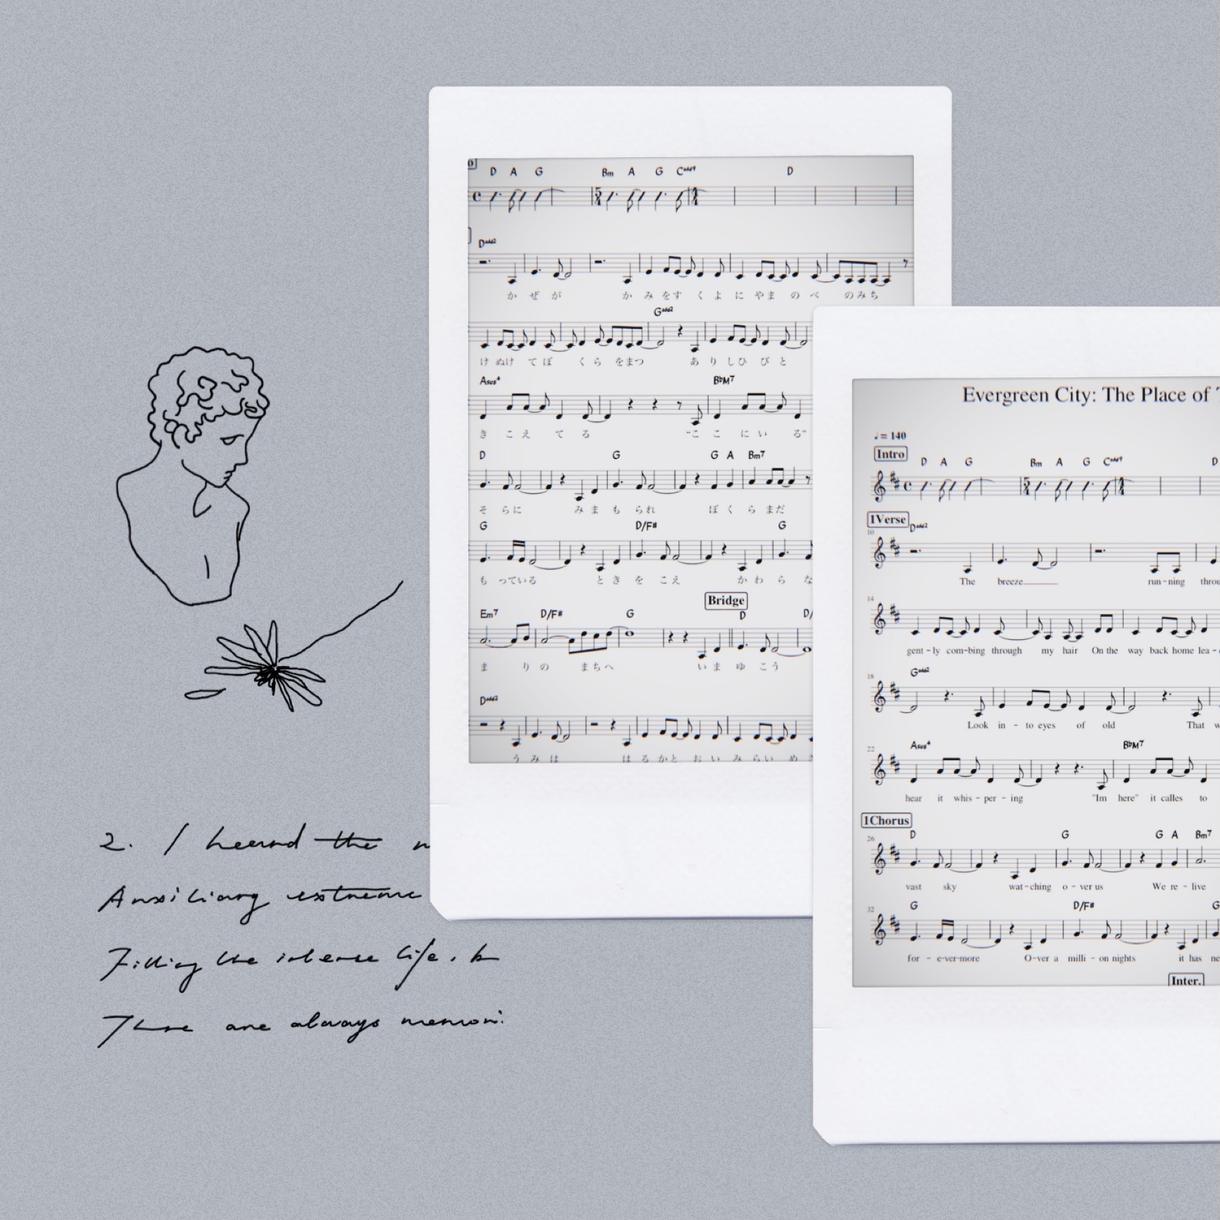 D A G Bm A G Cadd9 D
Dadd2
か ぜ が か み をす く よ に やま の べ のみち
Gadd2
け ぬけ て ぼ く ら をまつ あ り しひ び と
Asus4 B♭M7
き こ え て る "こ こ に い る"
D G G A Bm7
そ らに み ま も られ ぼ く ら まだ
G D/F# G
も っている と き を こ え か わ ら な
Bridge
Em7 D/F# G D
ま り の まちへ い ま ゆ こ う
Dadd2
う み は は る かと お い み らい め
Evergreen City: The Place of
♩= 140
Intro
D A G Bm A G Cadd9 D
1Verse
Dadd2
10
The breeze run - ning
14
gent - ly com - bing through my hair On the way back home lea -
18
Gadd2
Look in - to eyes of old That
22
Asus4 B♭M7
hear it whis - per - ing "Im here" it calles to
1Chorus
26
D G G A Bm7
vast sky wat - ching o - ver us We re - live
32
G D/F# G
for - e-ver-more O-ver a milli - on nights it has
Inter.
2. I heard the
Auxiliary extreme
Filling the intense life,
There are always